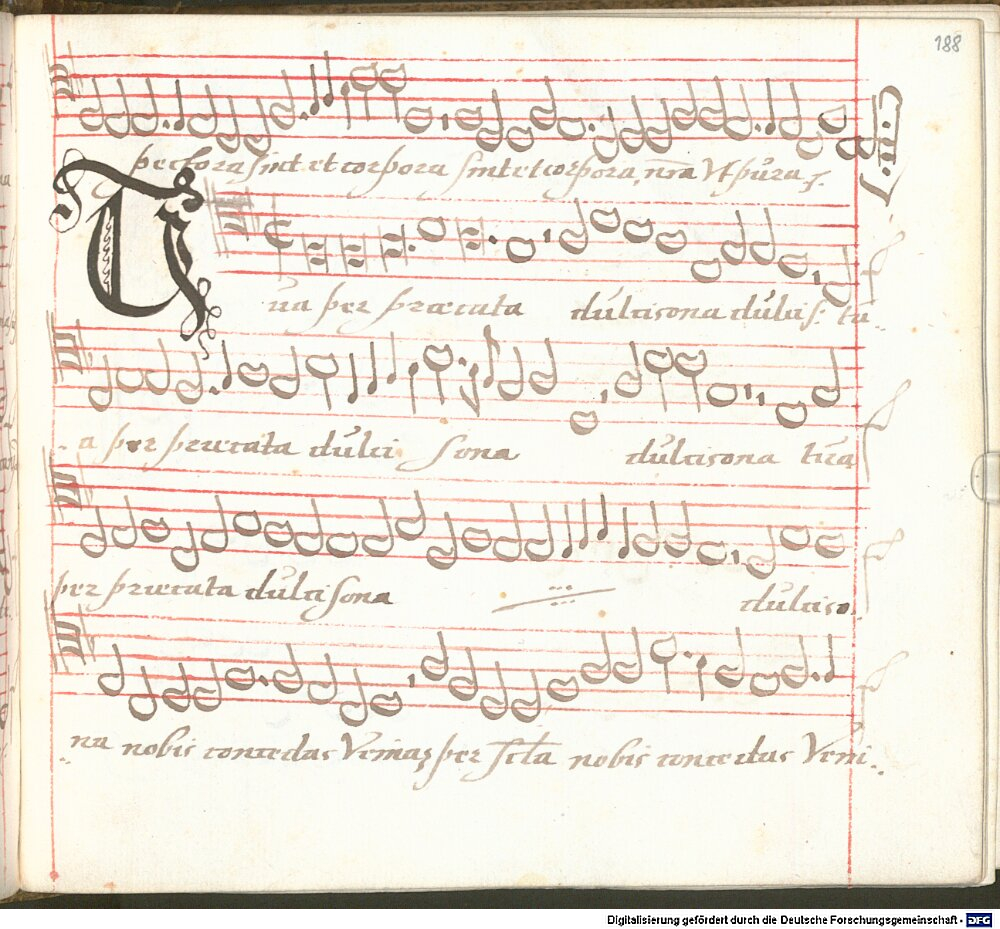 188
pectora sint et corpora sint et corpora, nr̄a Vt pura s.
Tua per precata dulcisona dulcis: tu-
a per precata dulci sona dulcisona tua
per precata dulcisona dulciso
na nobis concedas Veniaꝫ per Scl̄a nobis concedas Veni
Digitalisierung gefördert durch die Deutsche Forschungsgemeinschaft - DFG